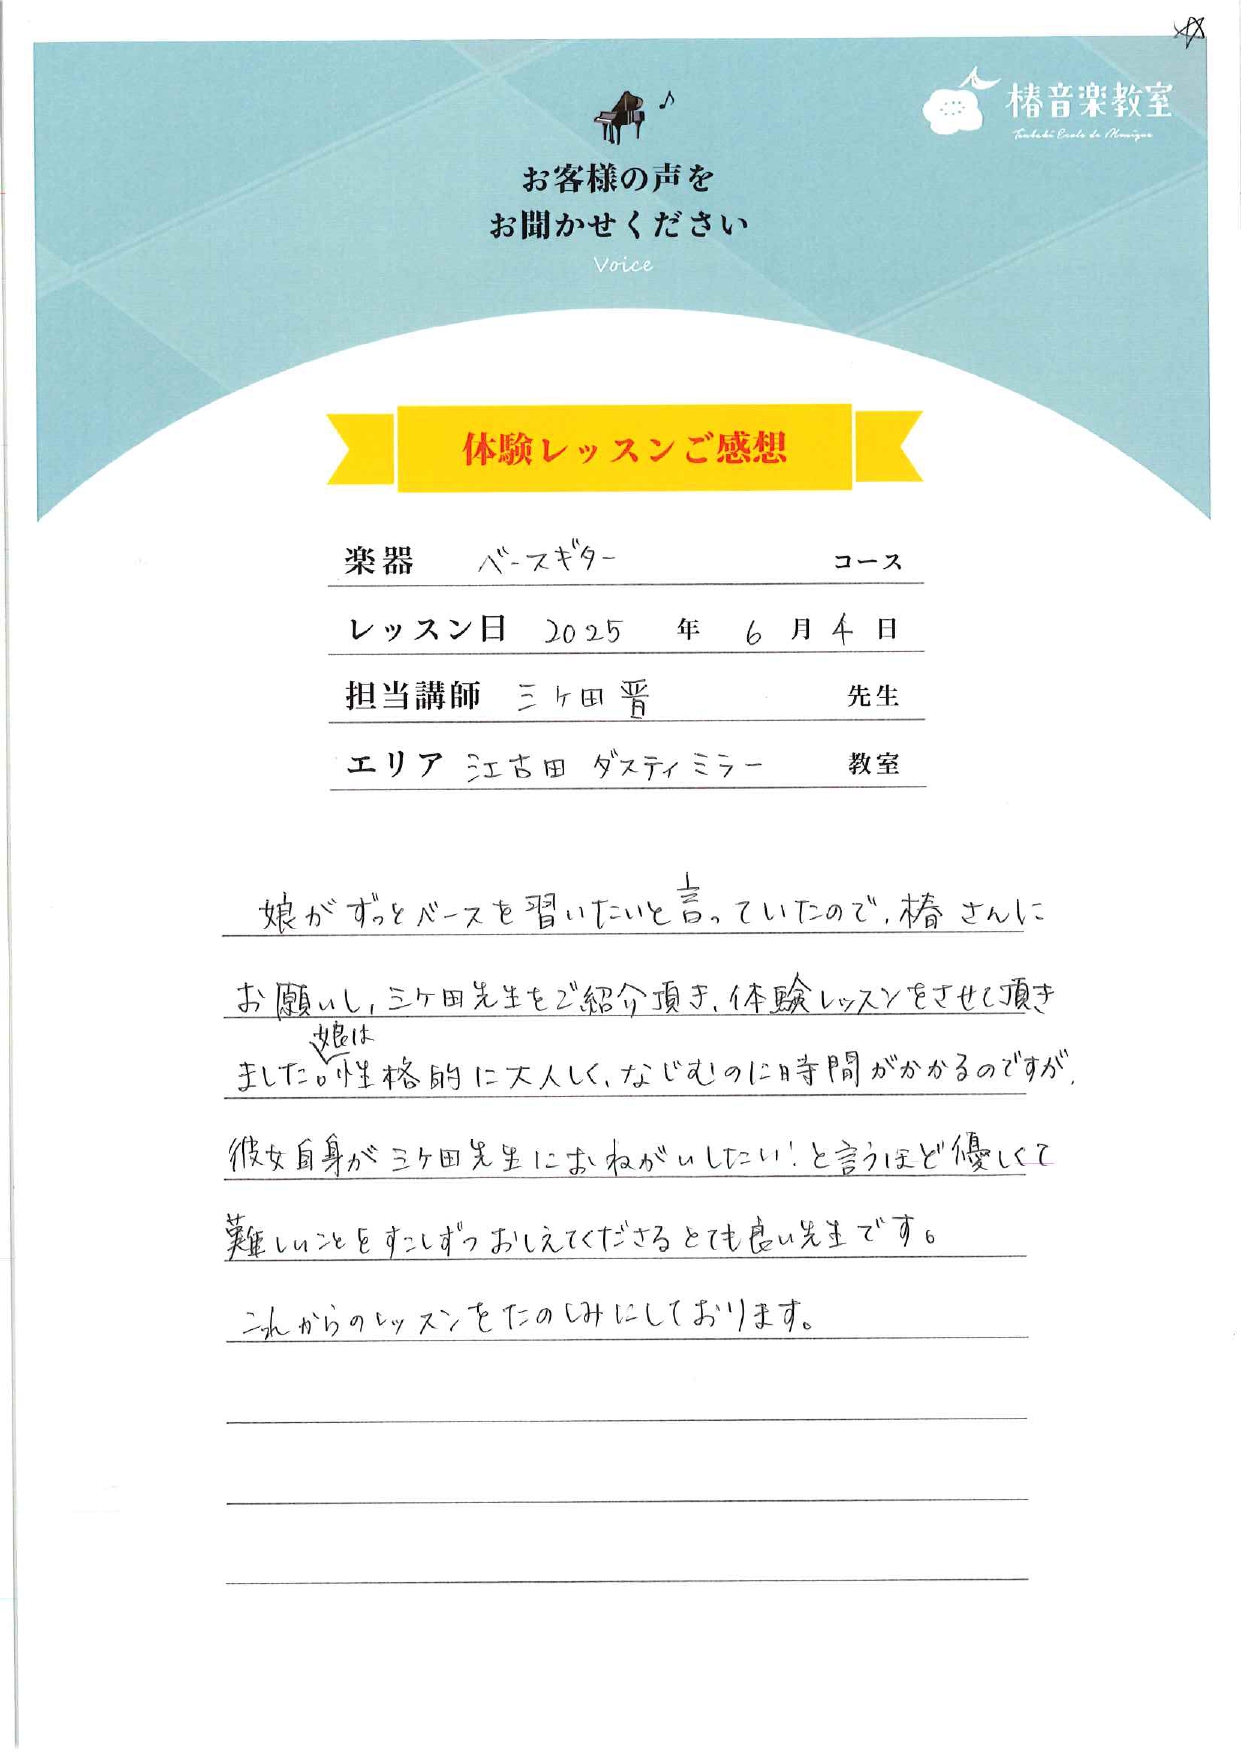 椿音楽教室
Tsubaki Ecole de Musique
お客様の声を
お聞かせください
Voice
体験レッスンご感想
楽器 ベースギター コース
レッスン日 2025 年 6 月 4 日
担当講師 三ヶ田 晋 先生
エリア 江古田 ダスティミラー 教室
娘がずっとベースを習いたいと言っていたので、椿さんに
お願いし、三ケ田先生をご紹介頂き、体験レッスンをさせて頂き
ました。娘は性格的に大人しく、なじむのに時間がかかるのですが、
彼女自身が三ケ田先生におねがいしたい!と言うほど優しくて
難しいことをすこしずつおしえてくださるとても良い先生です。
これからのレッスンをたのしみにしております。